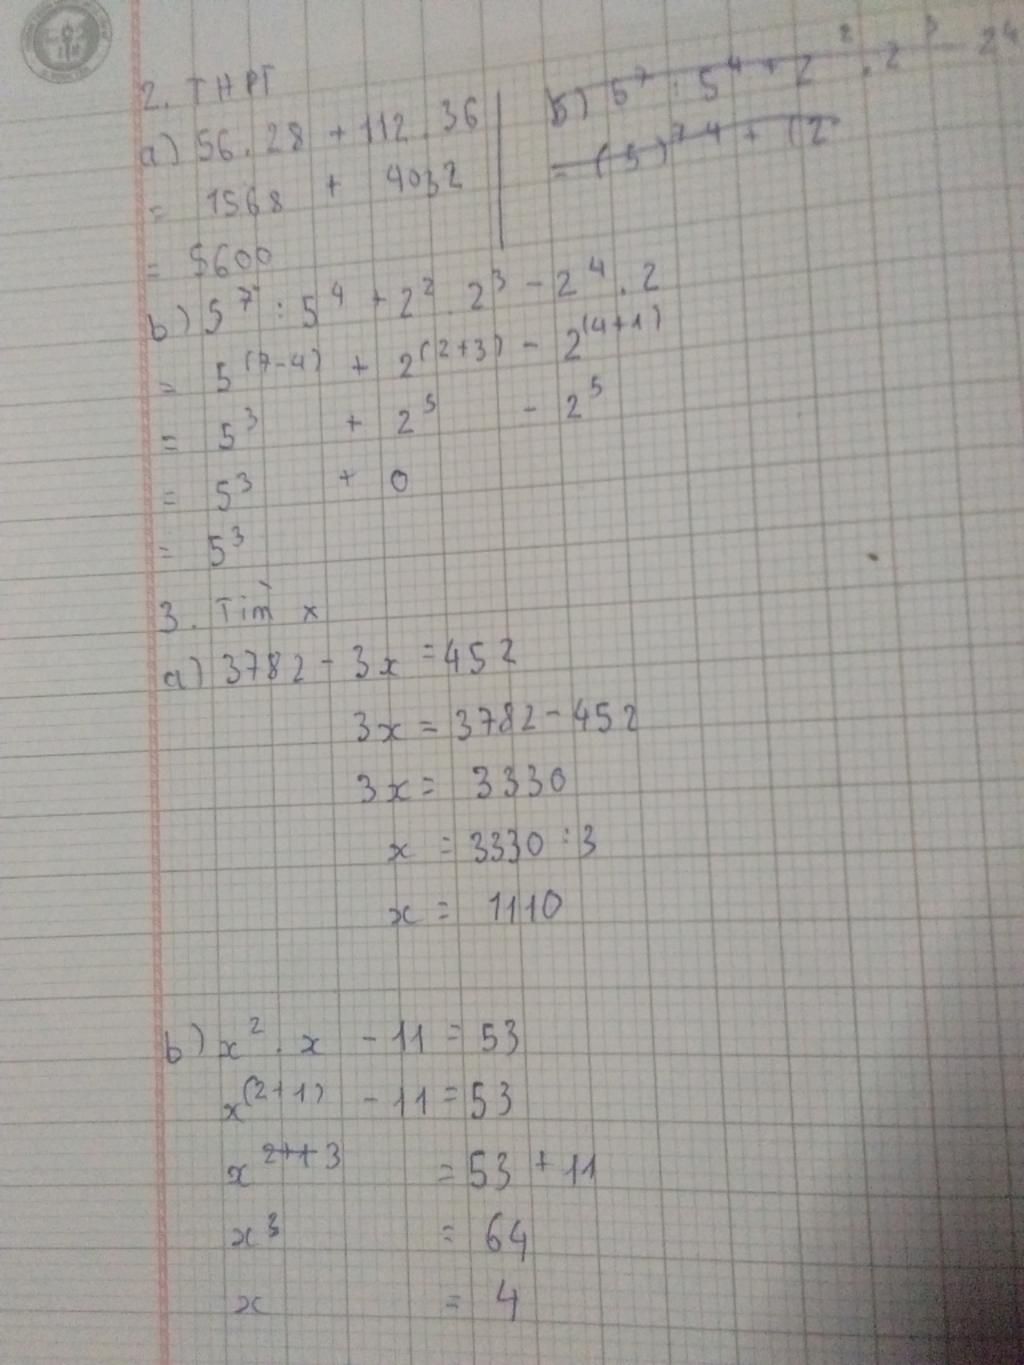 2. THPT
a) 56 . 28 + 112 . 36
= 1568 + 4032
= 5600
b) 5^7 : 5^4 + 2^2 . 2^3 - 2^4
= (5)^7-4 + (2
b) 5^7 : 5^4 + 2^2 . 2^3 - 2^4 . 2
= 5^(7-4) + 2^(2+3) - 2^(4+1)
= 5^3 + 2^5 - 2^5
= 5^3 + 0
= 5^3
3. Tìm x
a) 3782 - 3x = 452
3x = 3782 - 452
3x = 3330
x = 3330 : 3
x = 1110
b) x^2 . x - 11 = 53
x^(2+1) - 11 = 53
x^2+1 3 = 53 + 11
x^3 = 64
x = 4